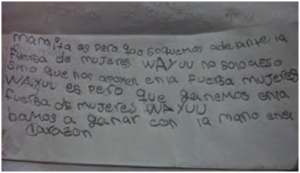 mamita espero que saquemos adelante la
fuerza de mujeres WAYUU no solo eso
sino que nos apoyen en la fuerza mujeres
WAYUU espero que ganemos en la
fuerza de mujeres WAYUU
bamos a ganar con la mano en el
corazon